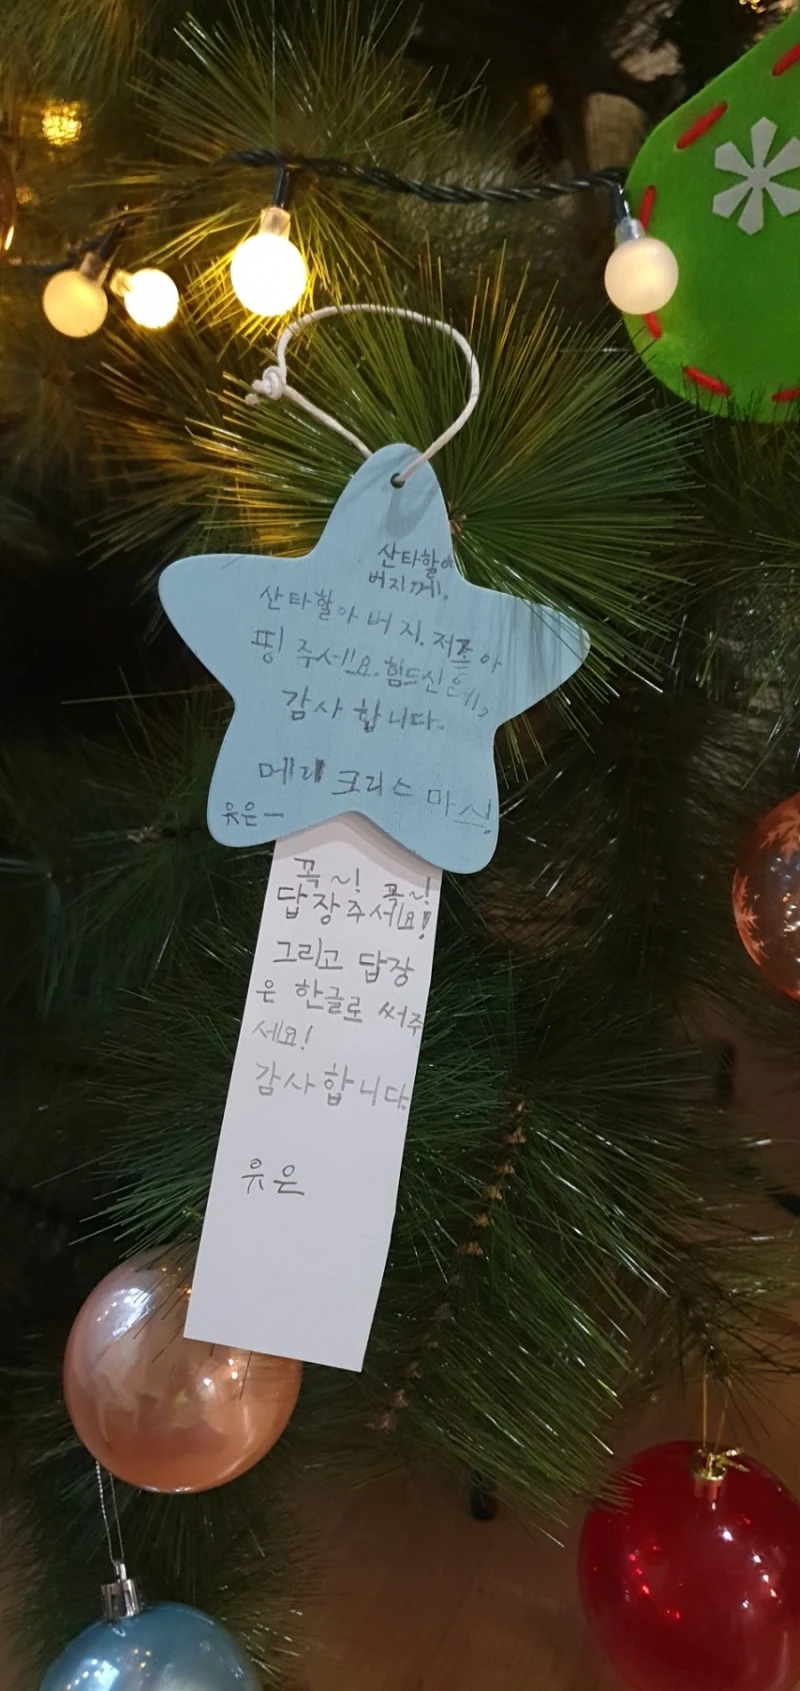 산타할아
버지께.
산타할아버지. 저좀아
띵 주세요. 힘드신
감사합니다.
메리 크리스마스!
유은-
꼭~! 꼭~!
답장주세요!
그리고 답장
은 한글로 써주
세요!
감사합니다.
유은